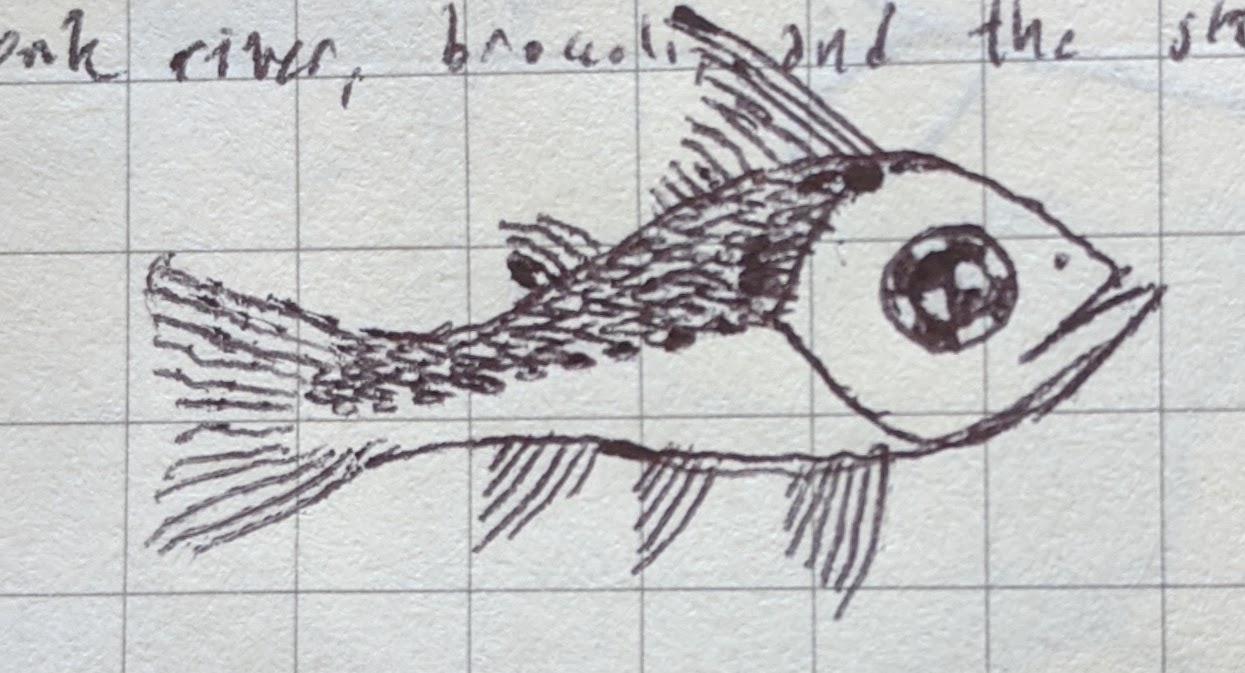 river, broccoli, and the